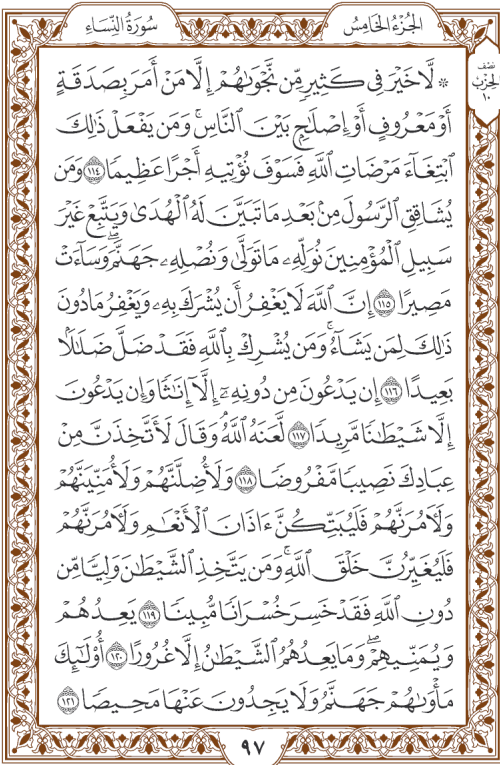 سُورَةُ النِّسَاءِ
الجُزْءُ الخَامِسُ
نِصْفُ
الحِزْبِ
١٠
۞ لَّا خَيْرَ فِى كَثِيرٍ مِّن نَّجْوَىٰهُمْ إِلَّا مَنْ أَمَرَ بِصَدَقَةٍ
أَوْ مَعْرُوفٍ أَوْ إِصْلَٰحٍۭ بَيْنَ ٱلنَّاسِۚ وَمَن يَفْعَلْ ذَٰلِكَ
ٱبْتِغَآءَ مَرْضَاتِ ٱللَّهِ فَسَوْفَ نُؤْتِيهِ أَجْرًا عَظِيمًا ١١٤ وَمَن
يُشَاقِقِ ٱلرَّسُولَ مِنۢ بَعْدِ مَا تَبَيَّنَ لَهُ ٱلْهُدَىٰ وَيَتَّبِعْ غَيْرَ
سَبِيلِ ٱلْمُؤْمِنِينَ نُوَلِّهِۦ مَا تَوَلَّىٰ وَنُصْلِهِۦ جَهَنَّمَۖ وَسَآءَتْ
مَصِيرًا ١١٥ إِنَّ ٱللَّهَ لَا يَغْفِرُ أَن يُشْرَكَ بِهِۦ وَيَغْفِرُ مَا دُونَ
ذَٰلِكَ لِمَن يَشَآءُۚ وَمَن يُشْرِكْ بِٱللَّهِ فَقَدْ ضَلَّ ضَلَٰلًۢا
بَعِيدًا ١١٦ إِن يَدْعُونَ مِن دُونِهِۦٓ إِلَّآ إِنَٰثًا وَإِن يَدْعُونَ
إِلَّا شَيْطَٰنًا مَّرِيدًا ١١٧ لَّعَنَهُ ٱللَّهُۘ وَقَالَ لَأَتَّخِذَنَّ مِنْ
عِبَادِكَ نَصِيبًا مَّفْرُوضًا ١١٨ وَلَأُضِلَّنَّهُمْ وَلَأُمَنِّيَنَّهُمْ
وَلَءَامُرَنَّهُمْ فَلَيُبَتِّكُنَّ ءَاذَانَ ٱلْأَنْعَٰمِ وَلَءَامُرَنَّهُمْ
فَلَيُغَيِّرُنَّ خَلْقَ ٱللَّهِۚ وَمَن يَتَّخِذِ ٱلشَّيْطَٰنَ وَلِيًّا مِّن
دُونِ ٱللَّهِ فَقَدْ خَسِرَ خُسْرَانًا مُّبِينًا ١١٩ يَعِدُهُمْ
وَيُمَنِّيهِمْۖ وَمَا يَعِدُهُمُ ٱلشَّيْطَٰنُ إِلَّا غُرُورًا ١٢٠ أُو۟لَٰٓئِكَ
مَأْوَىٰهُمْ جَهَنَّمُ وَلَا يَجِدُونَ عَنْهَا مَحِيصًا ١٢١
٩٧